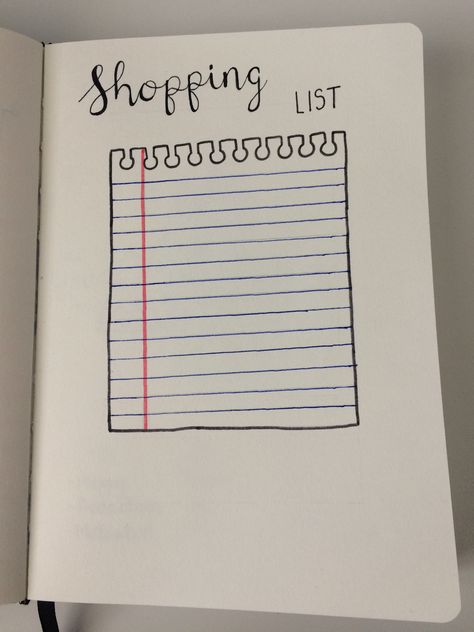 Shopping
LIST